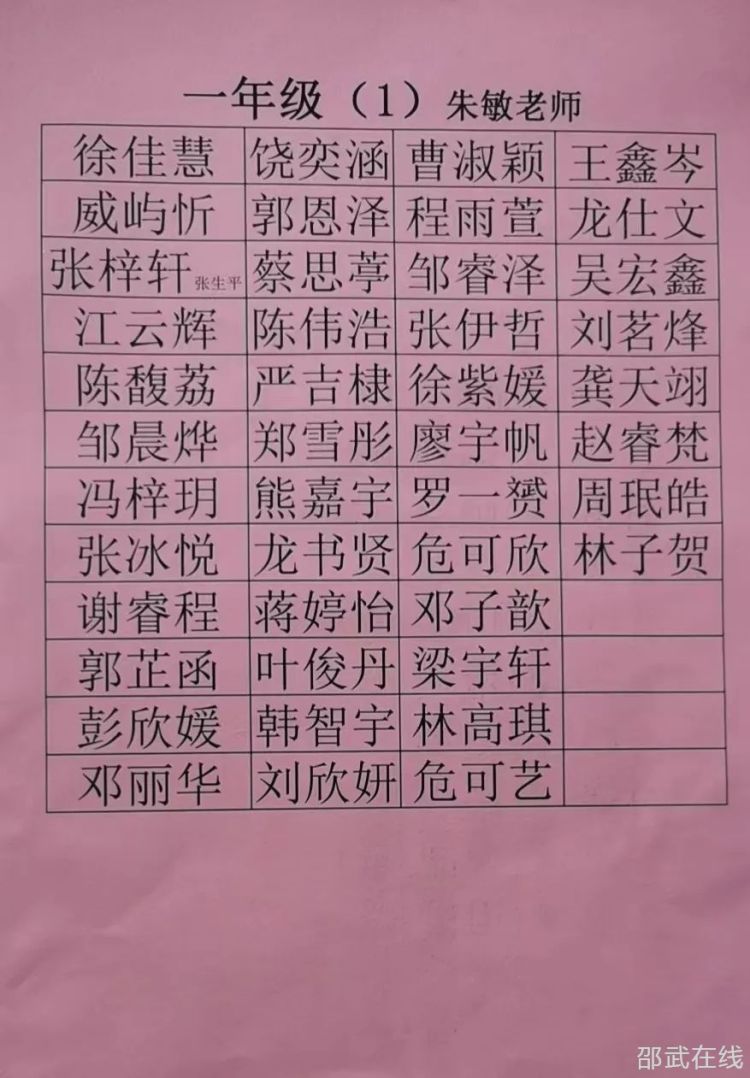 一年级（1）朱敏老师
徐佳慧 饶奕涵 曹淑颖 王鑫岑
威屿忻 郭恩泽 程雨萱 龙仕文
张梓轩 张生平 蔡思葶 邹睿泽 吴宏鑫
江云辉 陈伟浩 张伊哲 刘茗烽
陈馥荔 严吉棣 徐紫媛 龚天翊
邹晨烨 郑雪彤 廖宇帆 赵睿梵
冯梓玥 熊嘉宇 罗一赟 周珉皓
张冰悦 龙书贤 危可欣 林子贺
谢睿程 蒋婷怡 邓子歆
郭芷函 叶俊丹 梁宇轩
彭欣媛 韩智宇 林高琪
邓丽华 刘欣妍 危可艺
邵武在线